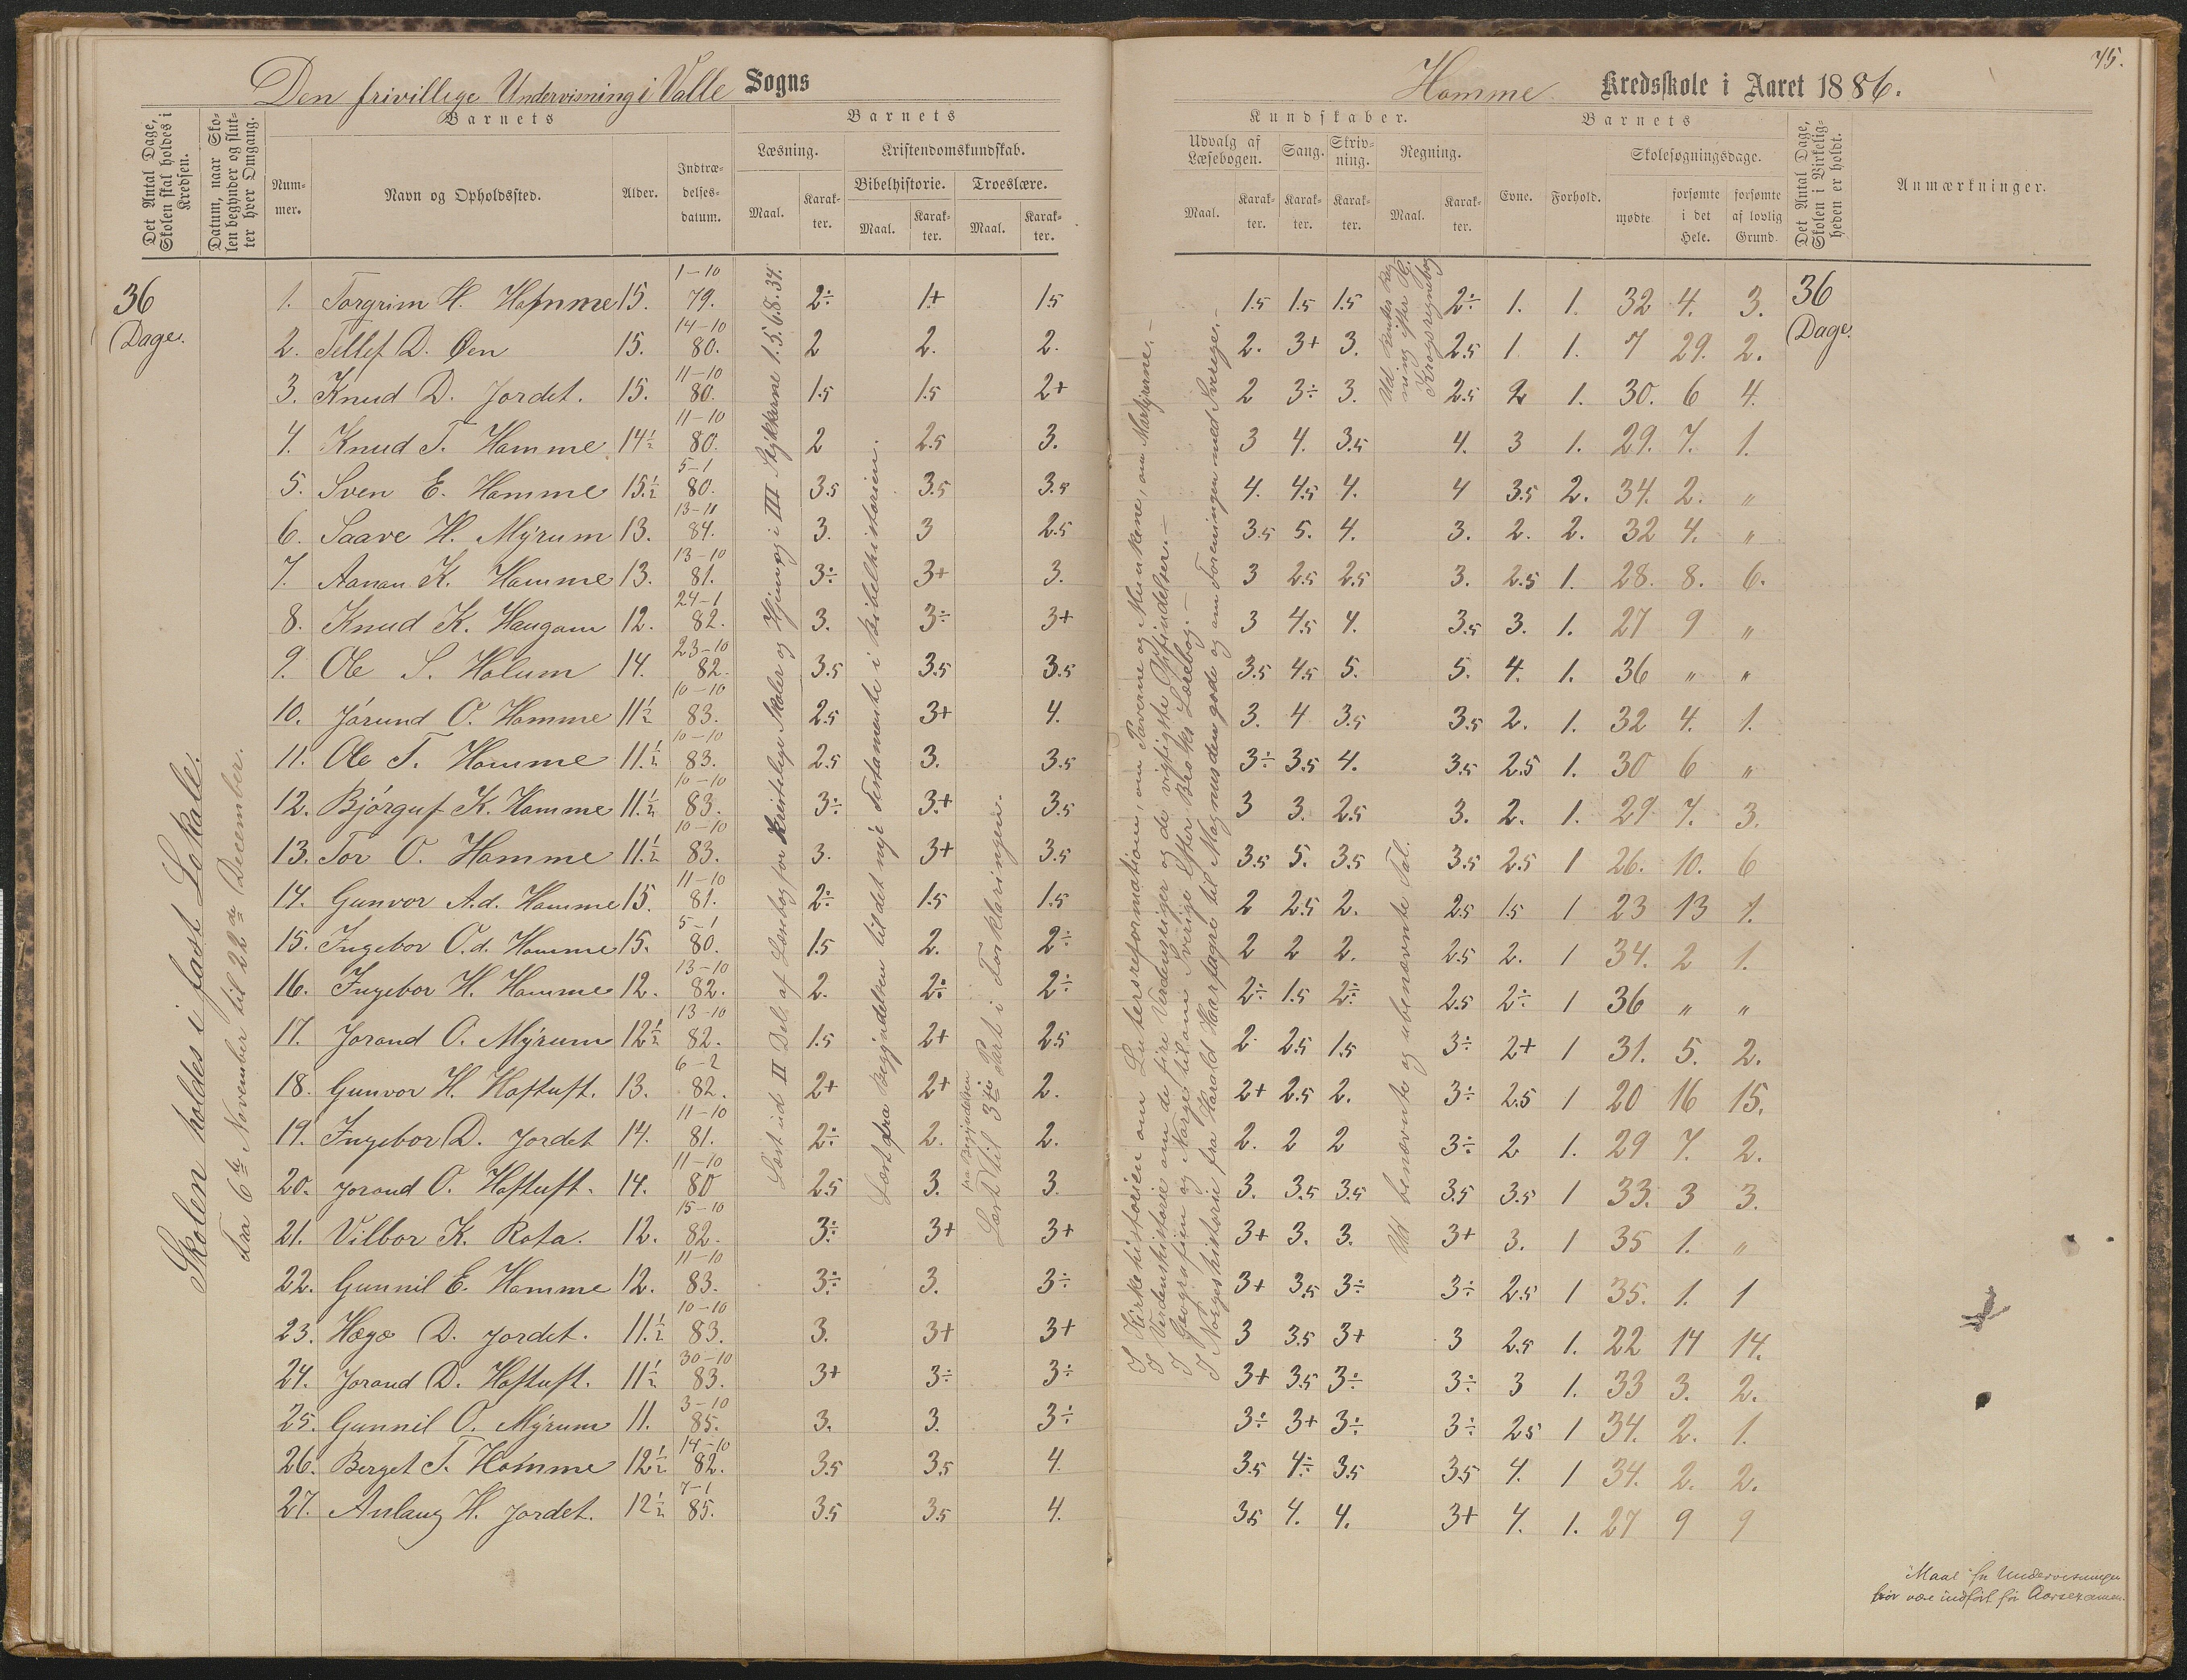 Den frivillige Undervisning i Valle Sogns
Homme Kredsskole i Aaret 1886.
75.
Det Antal Dage, Skolen skal holdes i Kredsen.
Datum, naar Skolen begynder og slutter hver Omgang.
Barnets
Nummer.
Navn og Opholdssted.
Alder.
Indtrædelsesdatum.
Barnets
Læsning.
Maal.
Karakter.
Kristendomskundskab.
Bibelhistorie.
Maal.
Karakter.
Troeslære.
Maal.
Karakter.
Kundskaber.
Udvalg af Læsebogen.
Maal.
Karakter.
Sang.
Karakter.
Skrivning.
Karakter.
Regning.
Maal.
Karakter.
Barnets
Evne.
Forhold.
Skolesøgningsdage.
mødte
forsømte i det Hele.
forsømte af lovlig Grund.
Det Antal Dage, Skolen i Virkeligheden er holdt.
Anmærkninger.
36 Dage.
Skolen holdes i fast Lokale.
Fra 6te November til 22de December.
Læst ud II Del. af Læsebog for Kristelige Skoler og Hjem og i III Stykkerne 1.5.6.8.34.
Læst fra Begyndelsen til det nye Testamente i Bibelhistorien.
fra Begyndelsen
Læst til 3die Part i Forklaringen.
I Kirkehistorien om Luthersreformation, om Paverne og Munkene, om Martyrerne.-
I Verdenshistorie om de fire Verdensriger og de vigtigste Opfindelser.-
I Geografien og Norge til om Sverige efter Broks Læsebog.-
I Norgeshistorie fra Harald Haarfagre til Magnus den gode og om Foreningen med Sverige.-
Ud benævnte og ubenævnte Tal.
36 Dage.
1. Torgrim H. Homme 15. 1-10 79. 2÷ 1+ 1.5 1.5 1.5 1.5 2÷ 1. 1. 32 4. 3.
2. Tellef D. Øen 15. 14-10 80. 2 2. 2. 2. 3+ 3. 2.5 1 1. 7 29. 2.
3. Knud D. Jordet. 15. 11-10 80. 1.5 1.5 2+ 2 3÷ 3. 2.5 2 1. 30. 6 4.
4. Knud T. Homme 14½ 11-10 80. 2 2.5 3. 3 4. 3.5 4. 3 1. 29. 7. 1.
5. Sven E. Homme 15.½ 5-1 80. 3.5 3.5 3.5 4. 4.5 4. 4 3.5 2. 34. 2. "
6. Saave H. Mýrum 13. 13-11 84. 3. 3 2.5 3.5 5. 4. 3. 2. 2. 32 4. "
7. Aanan K. Homme 13. 13-10 81. 3÷ 3+ 3. 3 2.5 2.5 3. 2.5 1. 28. 8. 6.
8. Knud K. Haugom 12. 24-1 82. 3. 3÷ 3+ 3 4.5 4. 3.5 3. 1. 27 9 "
9. Ole S. Holum 14. 23-10 82. 3.5 3.5 3.5 3.5 4.5 5. 5. 4. 1. 36 " "
10. Jórund O. Homme 11½ 10-10 83. 2.5 3+ 4. 3. 4 3.5 3.5 2. 1. 32 4. 1.
11. Ole T. Homme 11.½ 10-10 83. 2.5 3. 3.5 3÷ 3.5 4. 3.5 2.5 1. 30 6 "
12. Bjórguf K. Homme 11.½ 10-10 83. 3÷ 3+ 3.5 3 3. 2.5 3. 2. 1. 29. 7. 3.
13. Tor O. Homme 11.½ 10-10 83. 3. 3+ 3.5 3.5 5. 3.5 3.5 2.5 1 26. 10. 6
14. Gunvor A.d. Homme 15. 11-10 81. 2÷ 1.5 1.5 2 2.5 2. 2.5 1.5 1 23 13 1.
15. Ingebor O.d. Homme 15. 5-1 80. 1.5 2. 2÷ 2 2 2. 2.5 2. 1 34. 2 1.
16. Ingebor H. Homme 12. 13-10 82. 2. 2÷ 2÷ 2÷ 1.5 2÷ 2.5 2÷ 1 36 " "
17. Jorond O. Mýrum 12½ 13-10 82. 1.5 2+ 2.5 2 2.5 1.5 3÷ 2+ 1 31. 5. 2.
18. Gunvor H. Hoftuft. 13. 6-2 82. 2+ 2+ 2. 2+ 2.5 2. 3÷ 2.5 1 20 16 15.
19. Ingebor D. Jordet 14. 11-10 81. 2÷ 2. 2. 2. 2 2 3÷ 2 1. 29 7. 2.
20. Jorond O. Hoftuft. 14. 11-10 80 2.5 3. 3. 3. 3.5 3.5 3.5 3.5 1 33. 3 3.
21. Vilbor K. Rota. 12. 15-10 82. 3÷ 3+ 3+ 3+ 3. 3. 3+ 3. 1 35 1. "
22. Gunnil E. Homme 12. 11-10 83. 3÷ 3. 3÷ 3+ 3.5 3÷ 3÷ 2.5 1 35. 1. 1
23. Hægo D. Jordet. 11.½ 10-10 83. 3. 3+ 3+ 3 3.5 3+ 3 2.5 1. 22 14 14.
24. Jorond D. Hoftuft. 11½ 30-10 83. 3+ 3÷ 3÷ 3+ 3.5 3÷ 3÷ 3 1. 33 3. 2.
25. Gunnil O. Mýrum 11. 3-10 85. 3. 3. 3÷ 3÷ 3+ 3÷ 3÷ 2.5 1 34. 2. 1.
26. Berget T. Homme 12½ 14-10 82. 3.5 3.5 4. 3.5 4÷ 3.5 3.5 4. 1 34. 2. 2.
27. Aslaug H. Jordet. 12½ 7-1 85. 3.5 3.5 4. 3.5 4. 4. 3+ 4. 1. 27 9 9
"Maal" for Undervisningen
bør være indført før Aarsexamen.